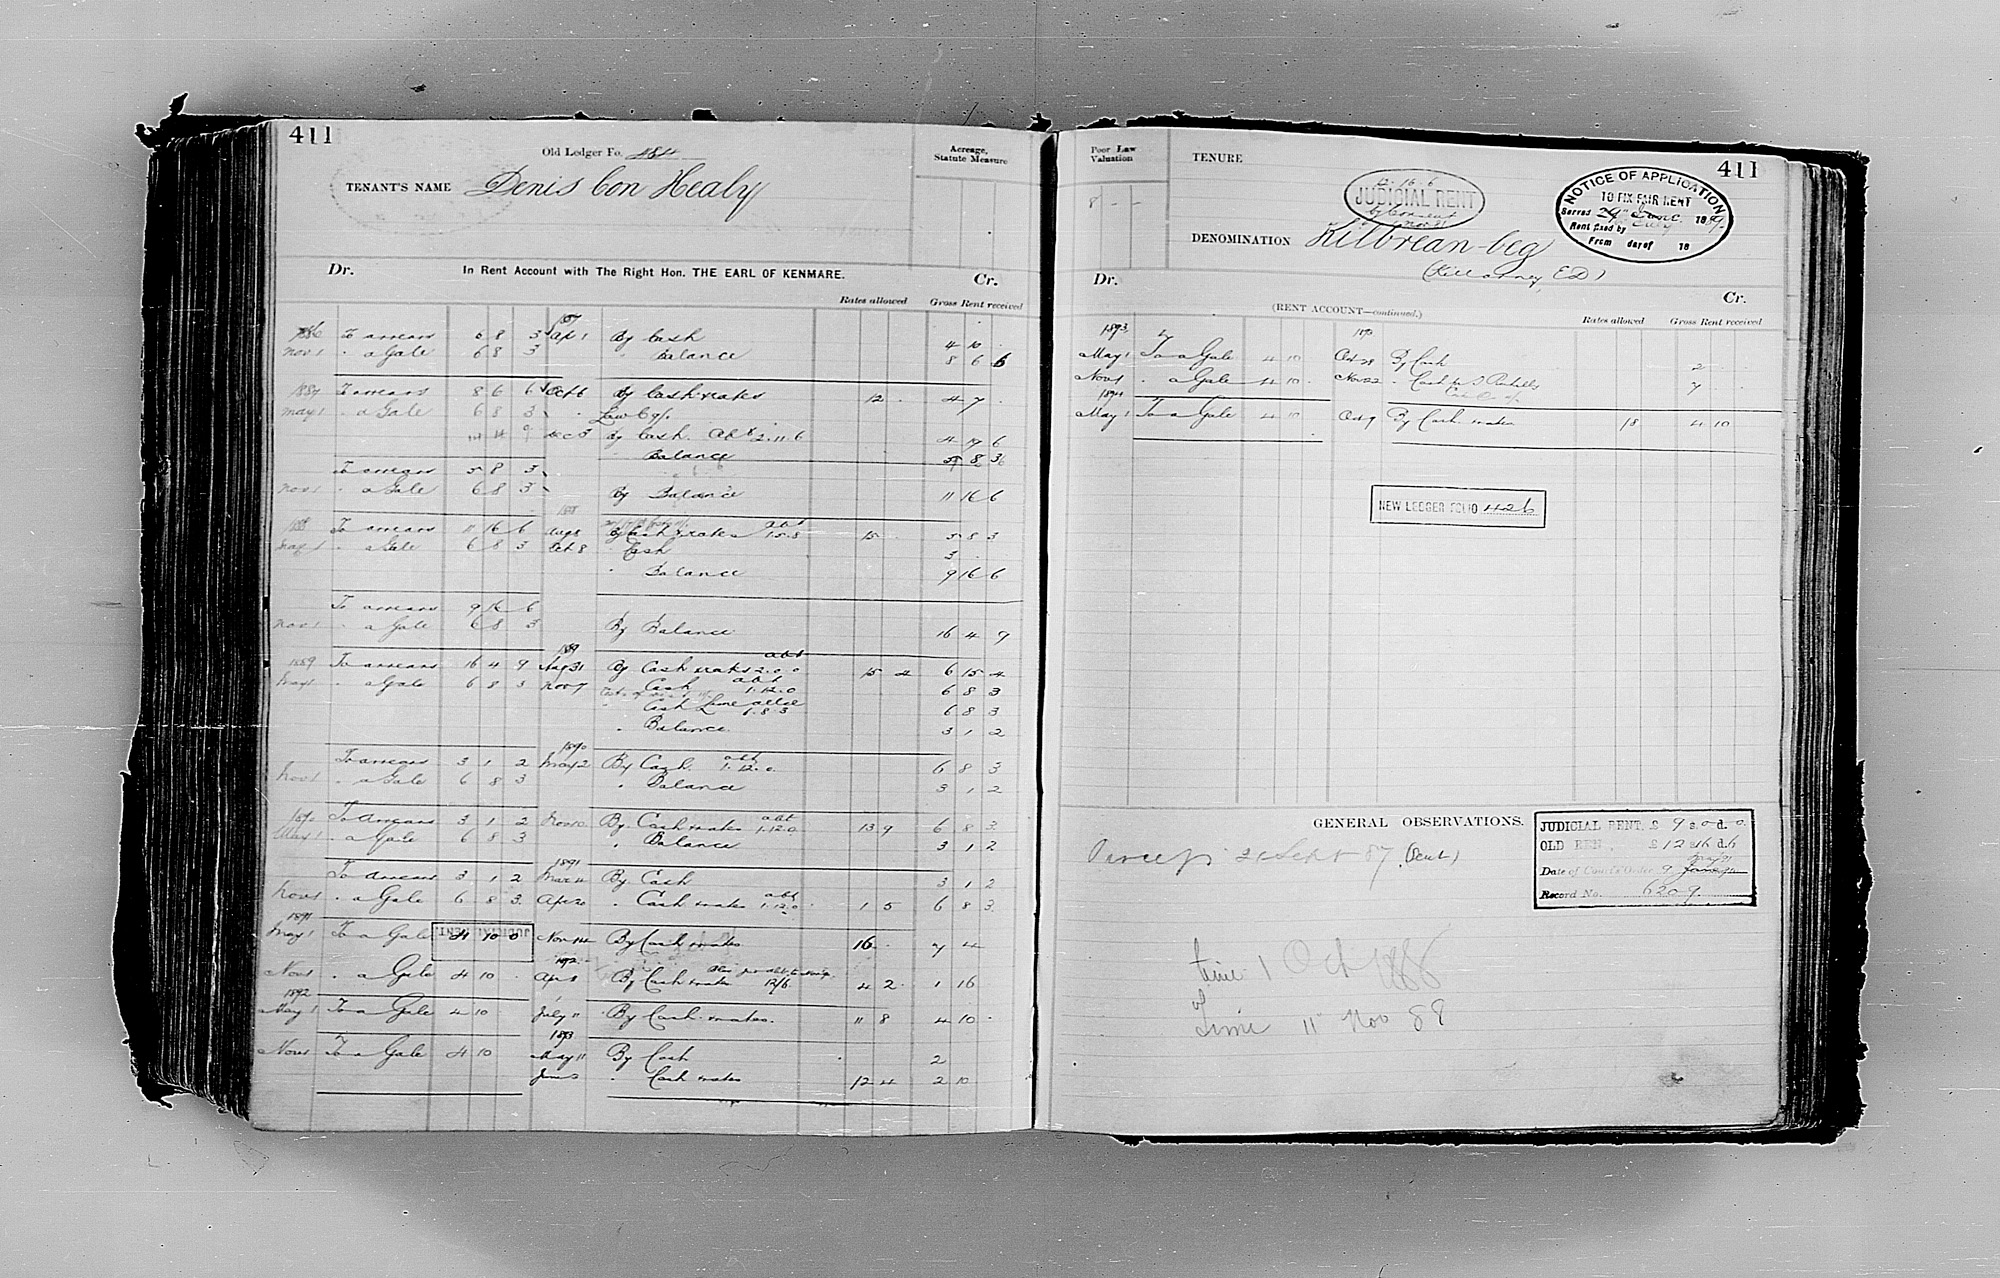 411
Old Ledger Fo. 484
Acreage,
Statute Measure
TENANT'S NAME Denis Con Healy
Dr. In Rent Account with The Right Hon. THE EARL OF KENMARE. Cr.
Rates allowed Gross Rent received
1886 To arrears 6 8 3 Apl 1 By Cash 4 10 .
Nov 1 . a Gale 6 8 3 Balance 8 6 6
1887 To arrears 8 6 6 Oct 6 By Cash & rates 12 . 4 7 .
May 1 . a Gale 6 8 3
14 14 9 Dec 3 By Cash. 2.11.6 4 19 6
Balance
To arrears 5 8 3
Nov 1 . a Gale 6 8 3 By Balance 11 16 6
1888
1888 To arrears 11 16 6 Aug 8 By Cash & rates abt 15.3 15 . 5 8 3
May 1 . a Gale 6 8 3 Oct 8 Cash 3 .
. Balance 9 16 6
To arrears 9 16 6
Nov 1 . a Gale 6 8 3 By Balance 16 4 9
1889
1889 To arrears 16 4 9 Aug 31 By Cash & rates abt 2.0.0 15 4 6 15 4
May 1 . a Gale 6 8 3 Nov 7 Cash abt 1.12.0 6 8 3
Cash Lime allce 1.8.3 6 8 3
. Balance. 3 1 2
1890
To arrears 3 1 2 May 2 By Cash. abt 1.12.0 6 8 3
Nov 1 . a Gale 6 8 3 . Balance 3 1 2
1890 To arrears 3 1 2 Nov 10 By Cash & rates abt 1.12.0 13 9 6 8 3
May 1 . a Gale 6 8 3 . Balance 3 1 2
1891
To arrears 3 1 2 Mar 4 By Cash 3 1 2
Nov 1 . a Gale 6 8 3 Apl 20 . Cash & rates abt 1.12.0 1 5 6 8 3
1891
May 1 To a Gale JUDICIAL RENT 4 10 0 Nov 14 By Cash & rates 16 . 7 4
1892
Nov 1 . a Gale 4 10 Apl 8 By Cash & rates 12/6 4 2 1 16
1892
May 1 To a Gale 4 10 July 11 By Cash & rates. 11 8 4 10 .
1893
Nov 1 To a Gale 4 10 May 11 By Cash 2
June . Cash & rates 12 4 2 10
Poor Law
Valuation
8 - -
TENURE
411
12.16.6
JUDICIAL RENT
by Consent
NOTICE OF APPLICATION
TO FIX FAIR RENT
Served 29th June 1889.
Rent fixed by
From day of 18
DENOMINATION Kilbrean-beg
(Killarney, E D)
Dr. Cr.
(RENT ACCOUNT—continued.)
Rates allowed Gross Rent received
1893
May 1 To a Gale 4 10 Oct 28 By Cash 2
Nov 1 . a Gale 4 10 . Nov 22 . Cash 7
1894
May 1 To a Gale 4 10 Oct 9 By Cash & rates 18 4 10
NEW LEDGER FOLIO 426
GENERAL OBSERVATIONS.
21 Sept 87 (Sent)
JUDICIAL RENT, £ 9 s. 0 d. 0
OLD RENT, £ 12 s. 16 d. 6
Date of Court's Order 9
Record No. 6209
Lime 1 Oct 1886
Lime 11 Nov 89